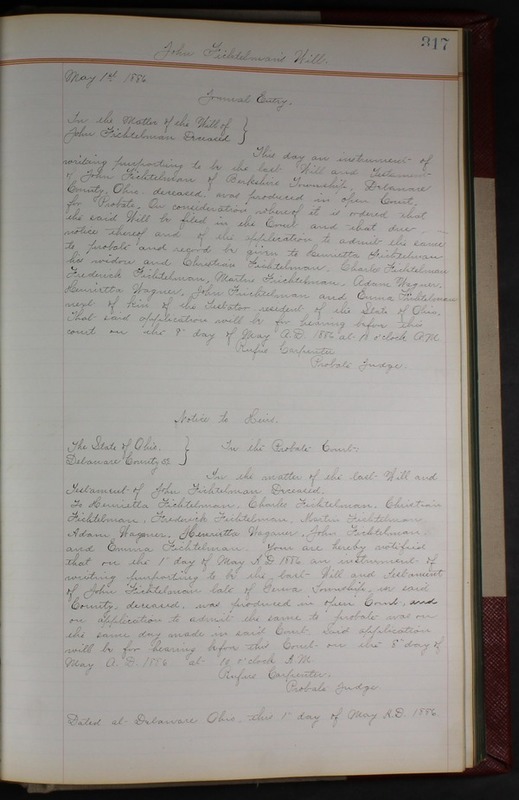 317
John Fichtelman's Will.
May 1st 1886
Journal Entry.
In the Matter of the Will of
John Fichtelman Deceased
This day an instrument of
writing purporting to be the last Will and Testament
of John Fichtelman of Berkshire Township, Delaware
County, Ohio. deceased, was produced in open Court,
for Probate, On consideration whereof it is ordered that
the said Will be filed in the Court and that due
notice thereof and of the application to admit the same
to probate and record be given to Henrietta Fichtelman
his widow and Christian Fichtelman, Charles Fichtelman
Frederick Fichtelman, Martin Fichtelman, Adam Wagner,
Henrietta Wagner, John Fichtelman and Emma Fichtelman
next of Kin of the Testator resident of the State of Ohio,
That said application will be for hearing before this
court on the 8" day of May A.D. 1886 at 10 o'clock A.M.
Rufus Carpenter
Probate Judge.
Notice to Heirs.
The State of Ohio,
Delaware County SS
In the Probate Court.
In the matter of the last Will and
Testament of John Fichtelman Deceased.
To Henrietta Fichtelman, Charles Fichtelman, Christian
Fichtelman, Frederick Fichtelman, Martin Fichtelman
Adam Wagner, Henrietta Wagner, John Fichtelman
and Emma Fichtelman. You are hereby notified
that on the 1" day of May A.D 1886 an instrument of
writing purporting to be the last Will and Testament
of John Fichtelman late of Township, in said
County, deceased, was produced in open Court, and
on application to admit the same to probate was on
the same day made in said Court. Said application
will be for hearing before this Court on the 8" day of
May A.D. 1886 at 10 o'clock A.M.
Rufus Carpenter.
Probate Judge
Dated at Delaware Ohio, this 1" day of May A.D. 1886